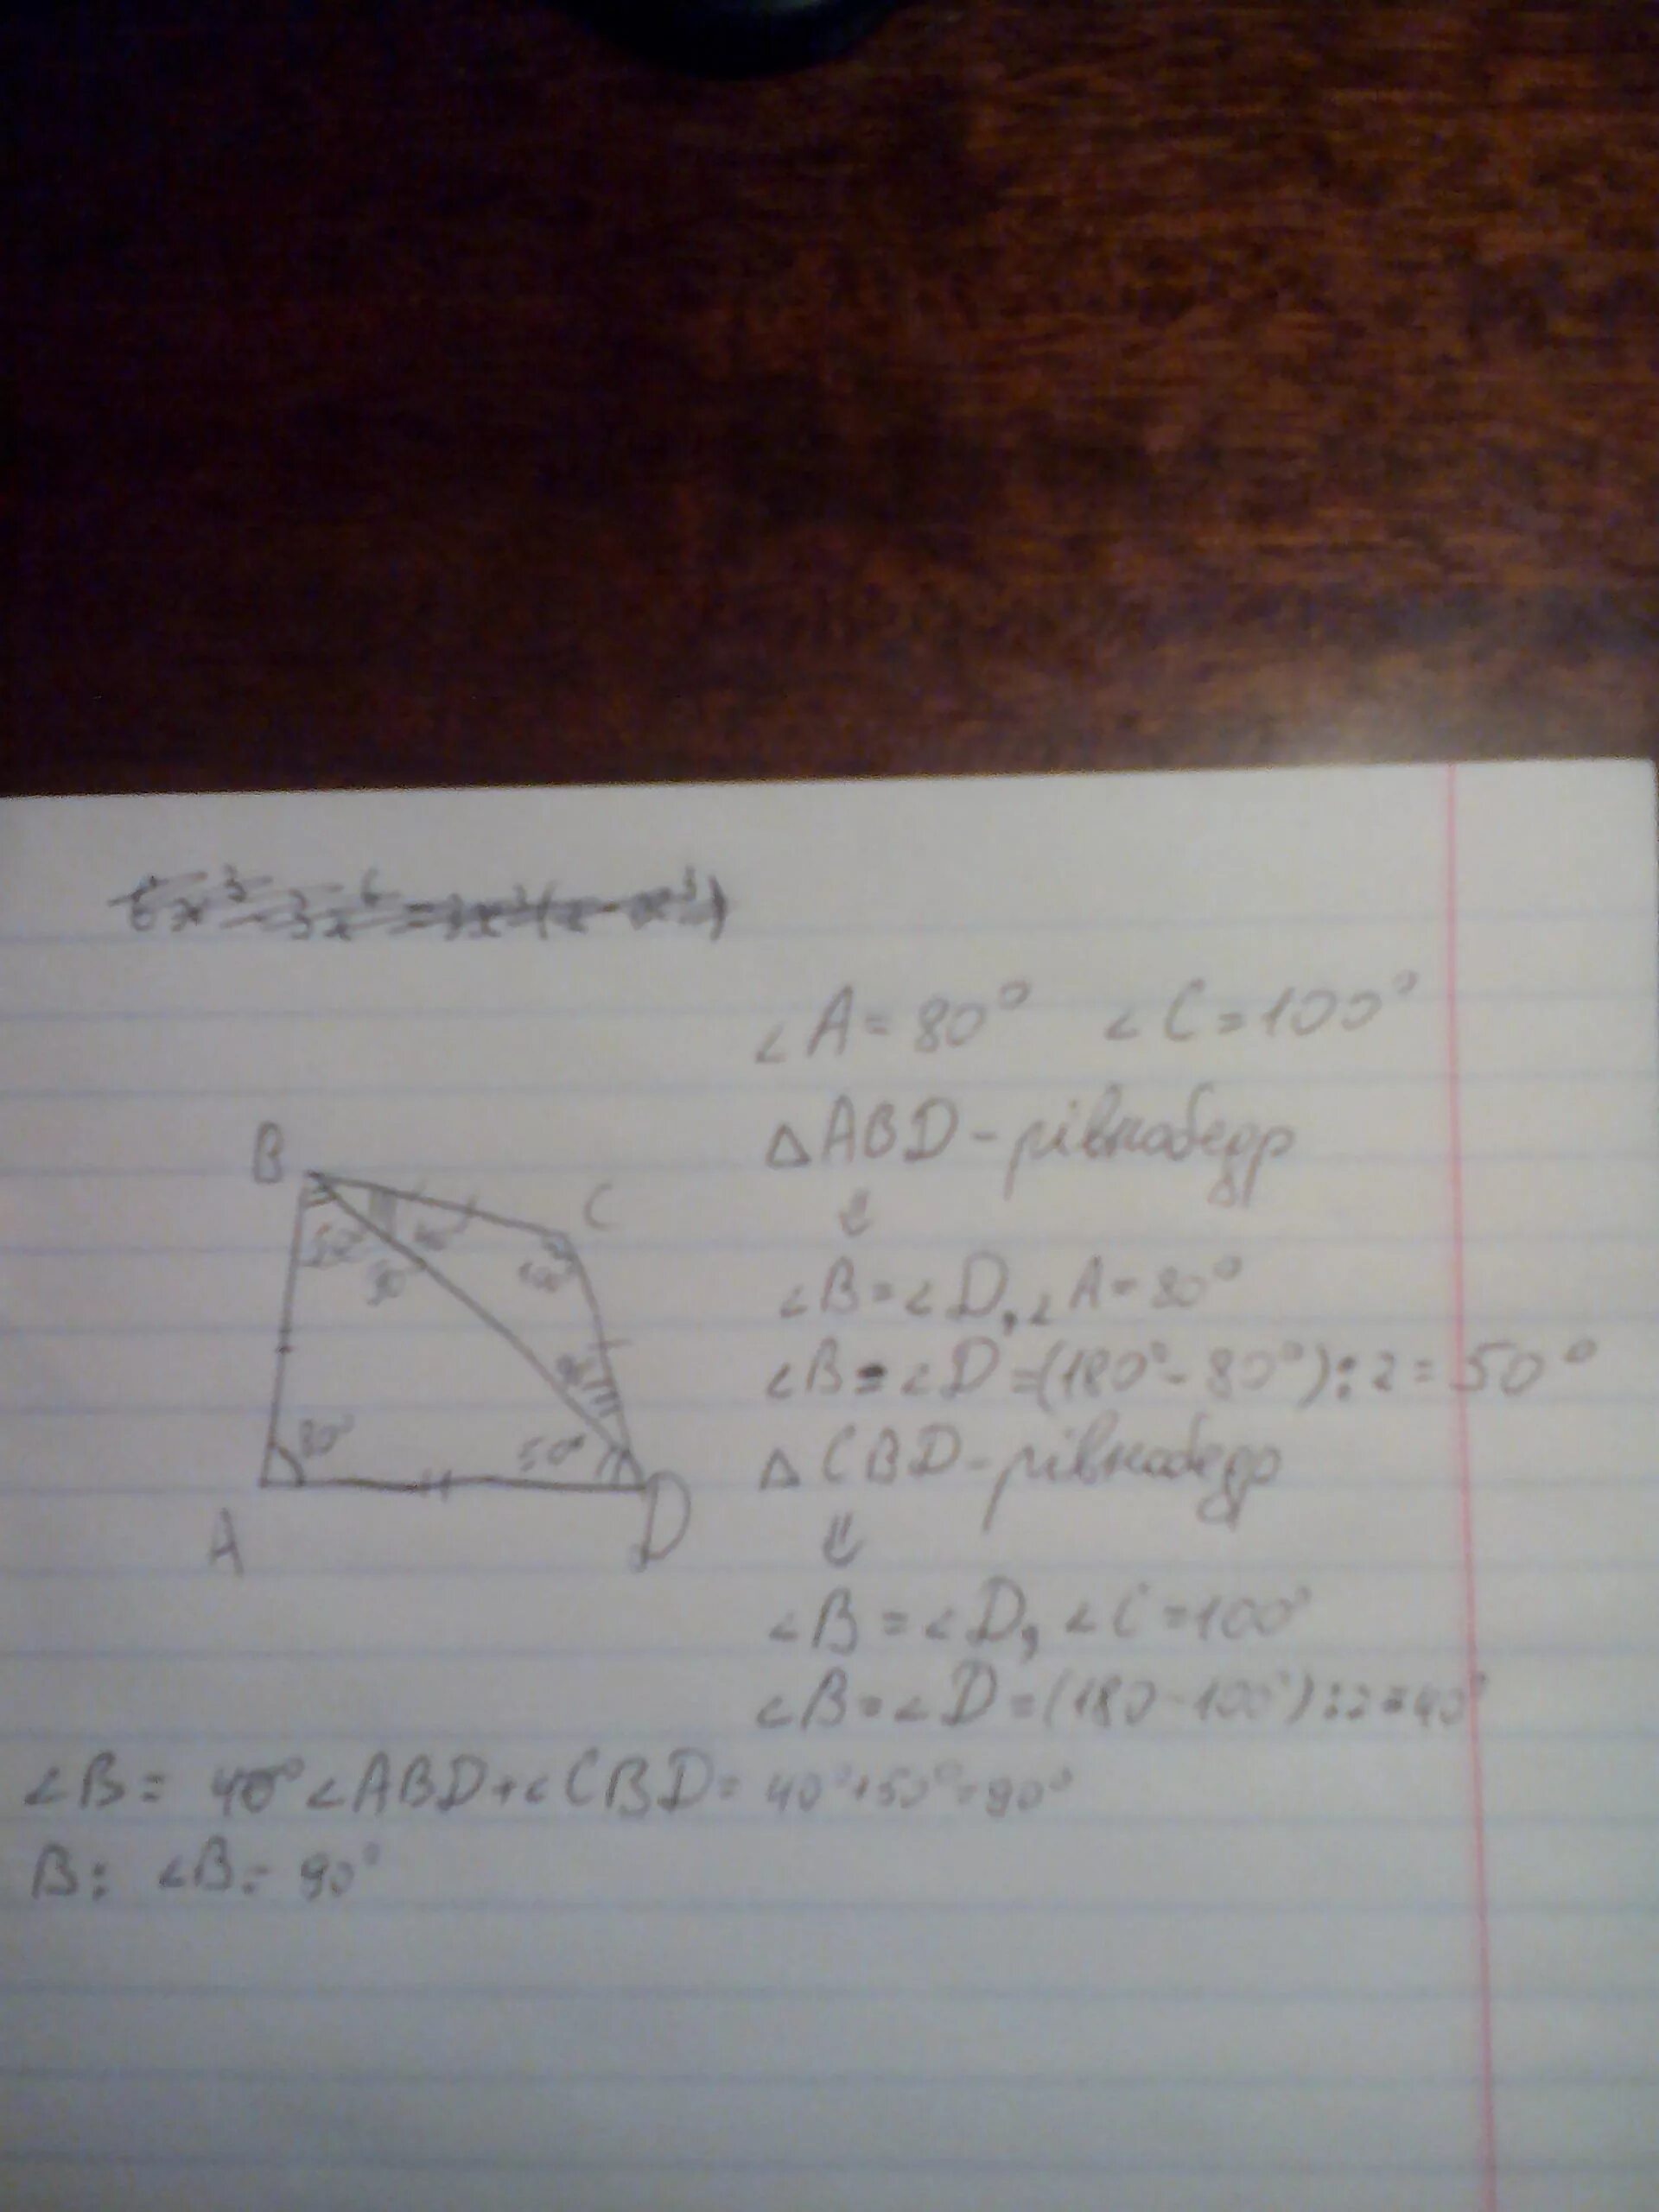 ∠A = 80° ∠C = 100°
△ABD - рівнобедр
⇓
∠B = ∠D, ∠A = 80°
∠B = ∠D = (180° - 80°) : 2 = 50°
△CBD - рівнобедр
⇓
∠B = ∠D, ∠C = 100°
∠B = ∠D = (180 - 100°) : 2 = 40°
B
C
50°
100°
80°
50°
A
D
∠B = 40° ∠ABD + ∠CBD = 40° + 50° = 90°
В: ∠B = 90°